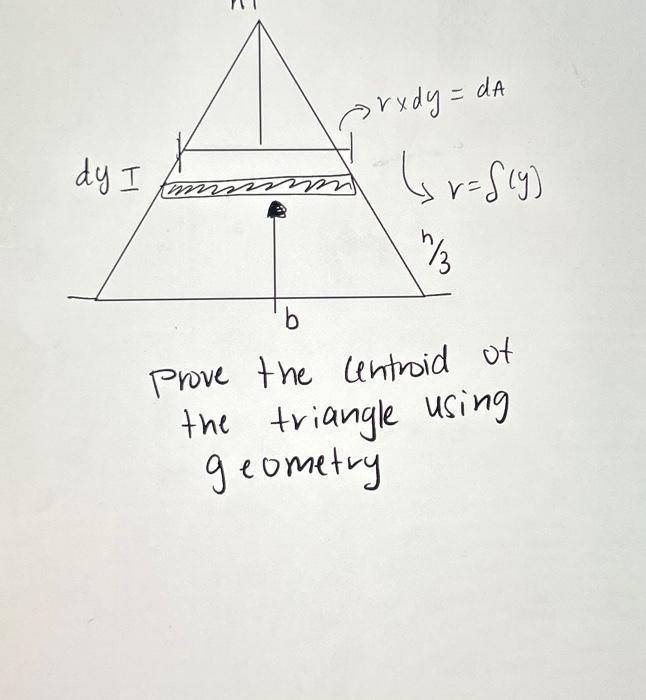 r x dy = dA
dy I
r = f(y)
h/3
b
Prove the centroid of
the triangle using
geometry